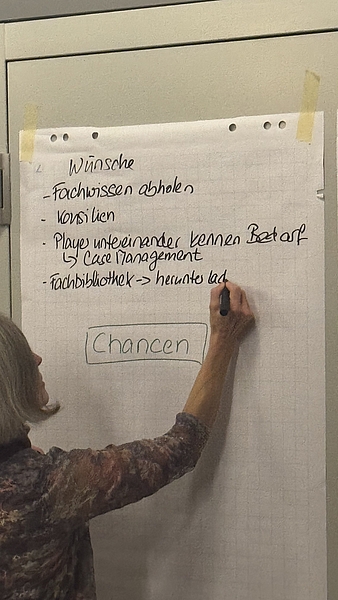 Wünsche
- Fachwissen abholen
- Konsilien
- Player untereinander kennen Bedarf
↳ Case Management
- Fachbibliothek -> herunterlad
Chancen